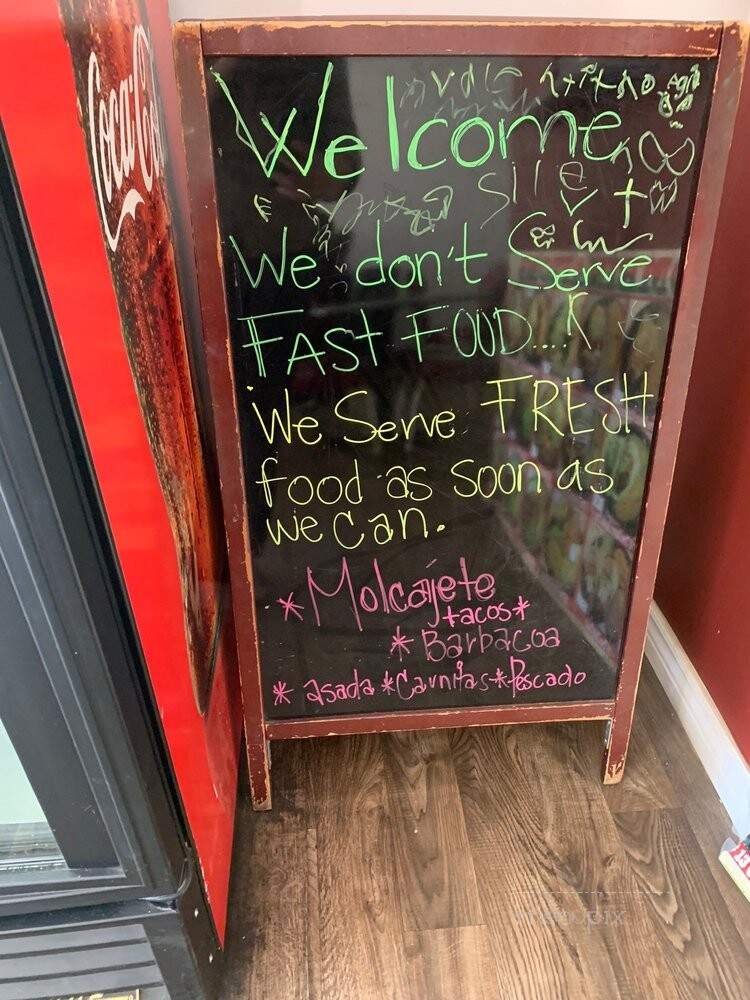 Coca-Cola
Welcome
We don't Serve
FAST FOOD....
We Serve FRESH
food as soon as
we can.
* Molcajete
tacos*
* Barbacoa
* asada *Carnitas*Pescado